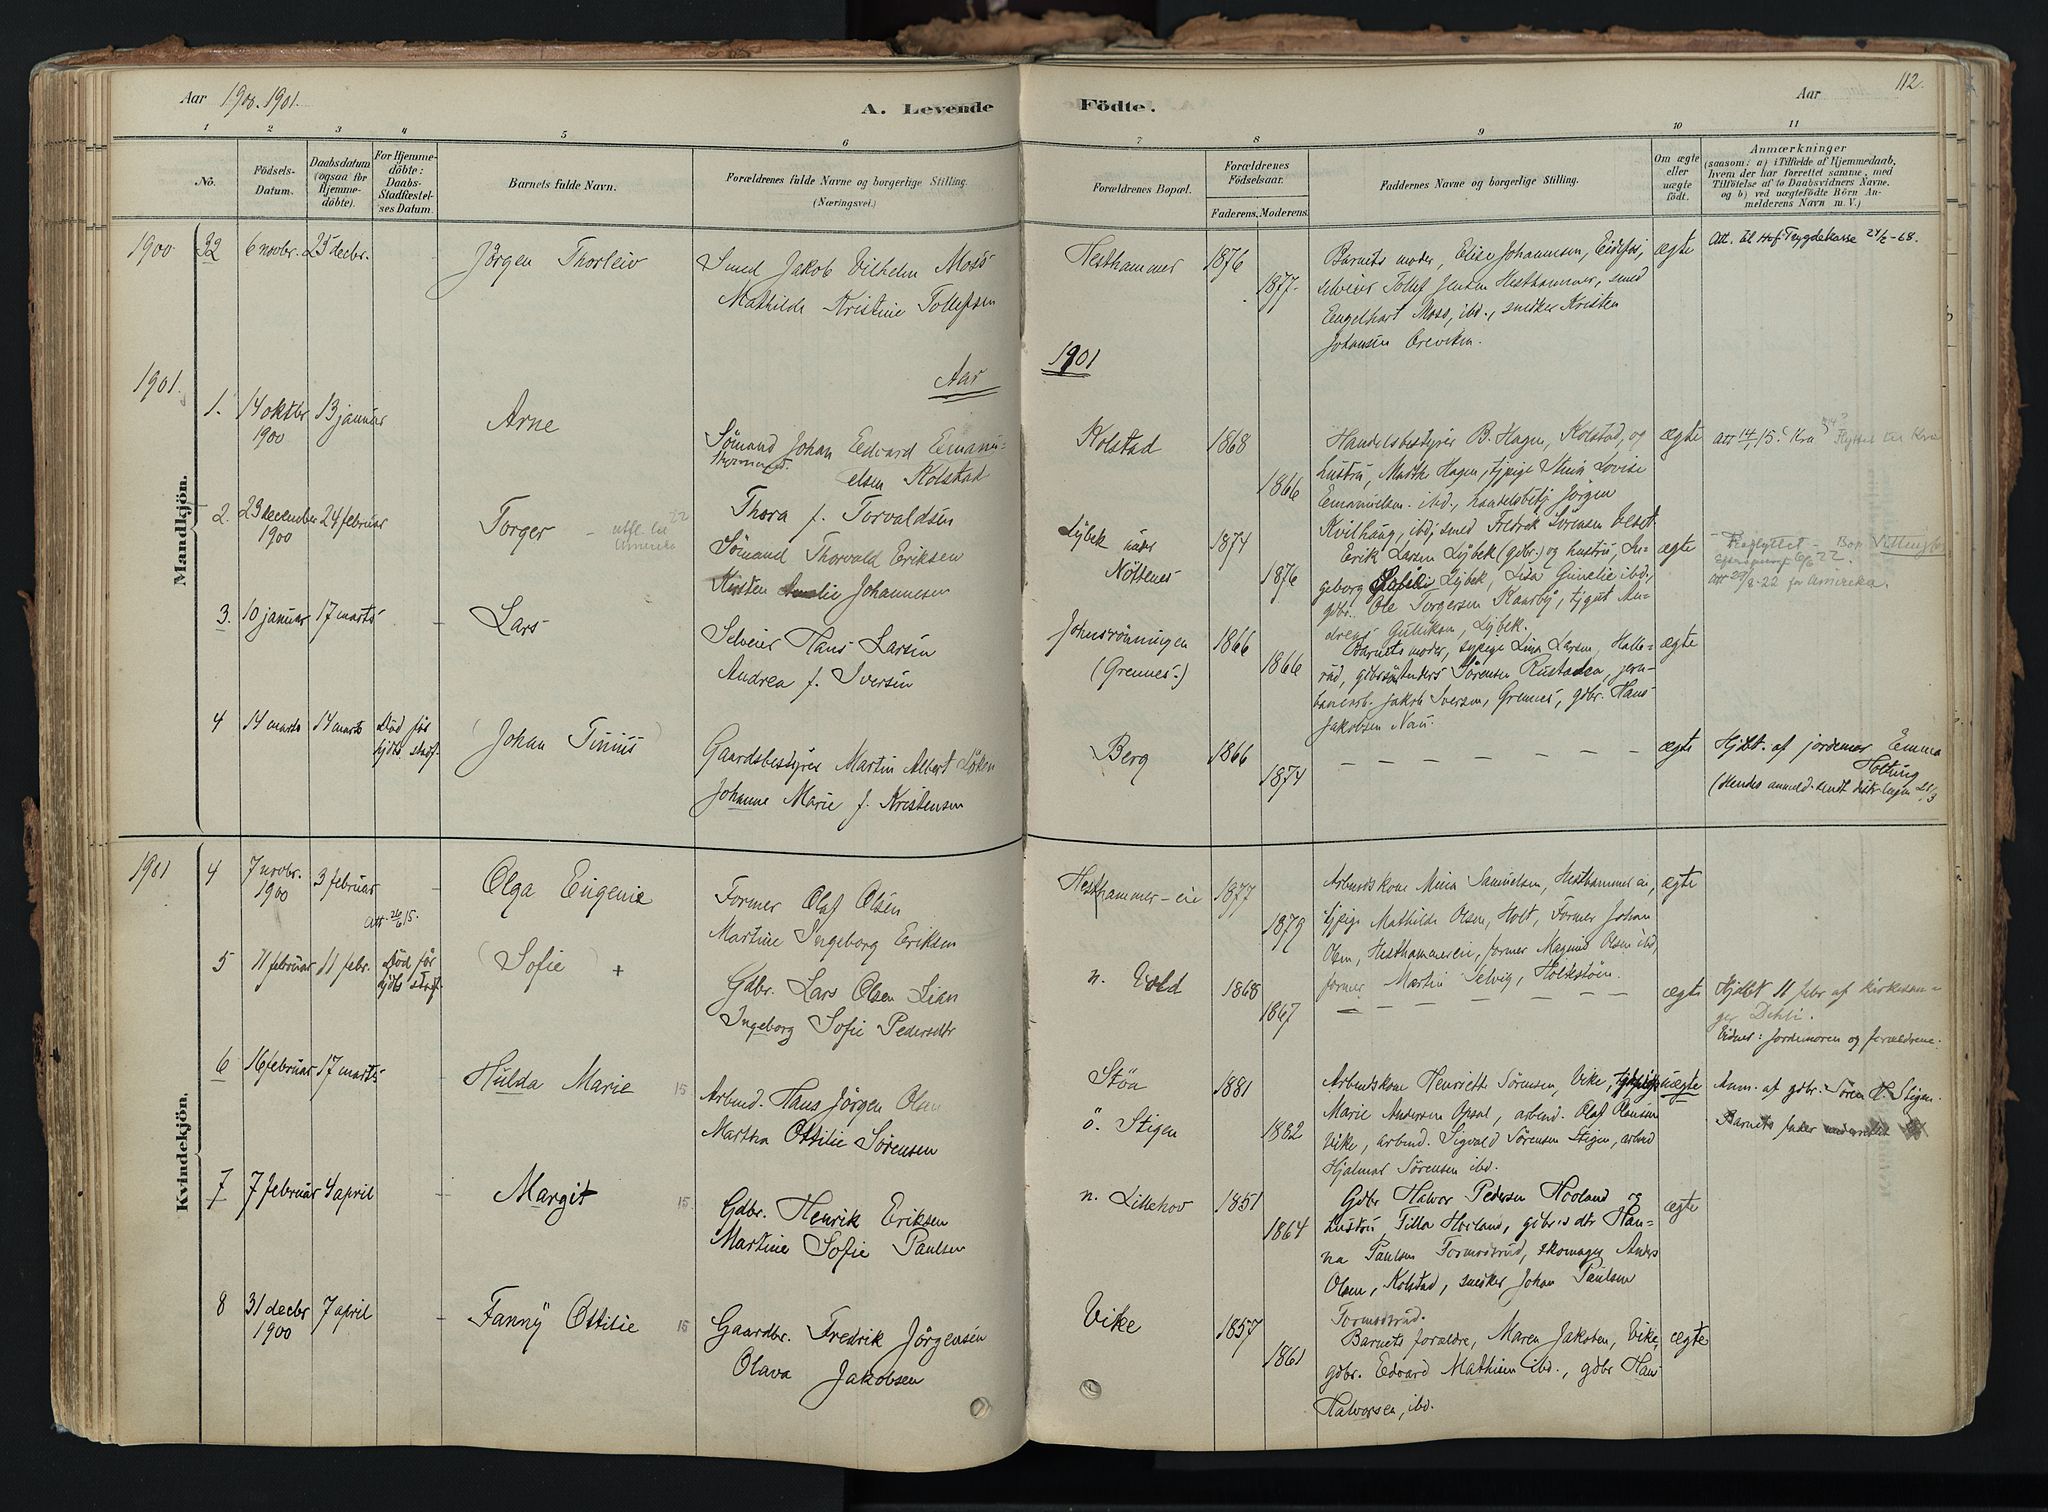 Aar 1900. 1901.
A. Levende
Födte.
Aar
112.
1
2
3
4
5
6
7
8
9
10
11
No.
Födsels-
Datum.
Daabsdatum
(ogsaa for
Hjemme-
döbte).
For Hjemme-
döbte:
Daabs-
Stadfæstel-
ses Datum.
Barnets fulde Navn.
Forældrenes fulde Navne og borgerlige Stilling.
(Næringsvei.)
Forældrenes Bopæl.
Forældrenes
Födselsaar.
Faderens.
Moderens.
Faddernes Navne og borgerlige Stilling.
Om ægte
eller
uægte
födt.
Anmærkninger
(saasom: a) i Tilfælde af Hjemmedaab,
hvem der har forrettet samme, med
Tilföielse af to Daabsvidners Navne.
og b) ved uægtefödte Börn An-
melderens Navn m. V.)
Mandkjön.
1900 32 6 novbr. 25 decbr.
Jörgen Thorleiv
Smed Jakob Vilhelm Moss
Mathilde Kristine Tollefsen
Hesthammer
1876
1877
Barnets moder, Elise Johannesen, Eidsfos,
selveier Tollef Jensen Hesthammer, smed
Engelhart Moss, ibd., snedker Kristen
Johansen
ægte
Att. til Hof Trygdekasse
1901.
Aar
1901
1. 14 oktbr 13 januar
1900
Arne
Sömand Johan Edvard Emanu-
elsen Kolstad
Thora f. Torvaldsen
Kolstad
1868
1866
Handelsbestyrer B. Hagen, Kolstad, og
hustru, Hagen, tjpige Lovise
Emanuelsen ibd., Jörgen
Kvilhaug, ibd., smed Fredrik Sörensen
ægte
2. 23 december 24 februar
1900
Torger
Amerika
Sömand Thorvald Eriksen
Amalie Johannesen
Lybek
1874
1876
Erik Larsen Lybek (gdbr.) og hustru, In-
geborg Lybek, Lisa Gunelie ibd.,
gdbr. Ole Torgersen
Gulliksen, Lybek.
ægte
for Amerika.
3. 10 januar 17 marts
Lars
Selveier Hans Larsen
Andrea f. Iversen
Johnsrönningen
(Grennes.)
1866
1866
Barnets moder, Larsen,
Anders Sörensen Rustaden, jern-
banearb. Jakob Iversen, Grennes, gdbr. Hans
Jakobsen
ægte
4 14 marts 14 marts Död för
hjdbs stadf.
(Johan Tinius)
Gaardsbestyrer Martin Albert Löken
Johanne Marie f. Kristensen
Berg
1866
1874
ægte
Hjdbt. af jordemor Emma
Holtung
Kvindekjön.
1901 4 7 novbr. 3 februar
1900
Olga Eugenie
Former Olaf Olsen
Martine Ingeborg Eriksen
Hesthammer-eie
1877
1879
Arbeidskone Mina Samuelsen, Hesthammer eie,
tjpige Mathilde Olsen, Holt, Former Johan
Olsen, Hesthammereie, former Magnus Olsen ibd,
former Martin Selvig,
ægte
5 11 februar 11 febr. Död för
hjdbs stadf.
(Sofie) +
Gdbr. Lars Olsen Lian
Ingeborg Sofie Pedersdtr
1868
1867
ægte
Hjdbt 11 febr af kirkesan-
ger Dehli.
Vidner: Jordemoren og forældrene.
6 16 februar 17 marts
Hulda Marie 15
Arbmd. Hans Jörgen Olsen
Martha Ottilie Sörensen
Stöa
ö. Stigen
1881
1882
Arbeidskone Henriette Sörensen, Vike,
Marie Andersen Opsal, arbmd. Olaf
Vike, arbmd. Sigvald Sörensen Stigen, arbmd
Hjalmar Sörensen ibd.
uægte
Anm. af gdbr. Sören H. Stigen.
Barnets fader
7 7 februar 4 april
Margit 15.
Gdbr. Henrik Eriksen
Martine Sofie Paulsen
n. Lillehov
1851
1864
Gdbr Halvor Pedersen Hovland og
hustru Tilla Hovland, Han-
na Paulsen Formosbrud, skomager Anders
Olsen, Kolstad, snedker Johan Paulsen
Formosbrud.
ægte
8 31 decbr 7 april
1900
Fanny Ottilie 15
Gaardbr. Fredrik Jörgensen
Olava Jakobsen
Vike
1857
1861
Barnets forældre, Maren Jakobsen, Vike,
gdbr. Edvard Mathisen ibd., gdbr Hans
Halvorsen, ibd.
ægte